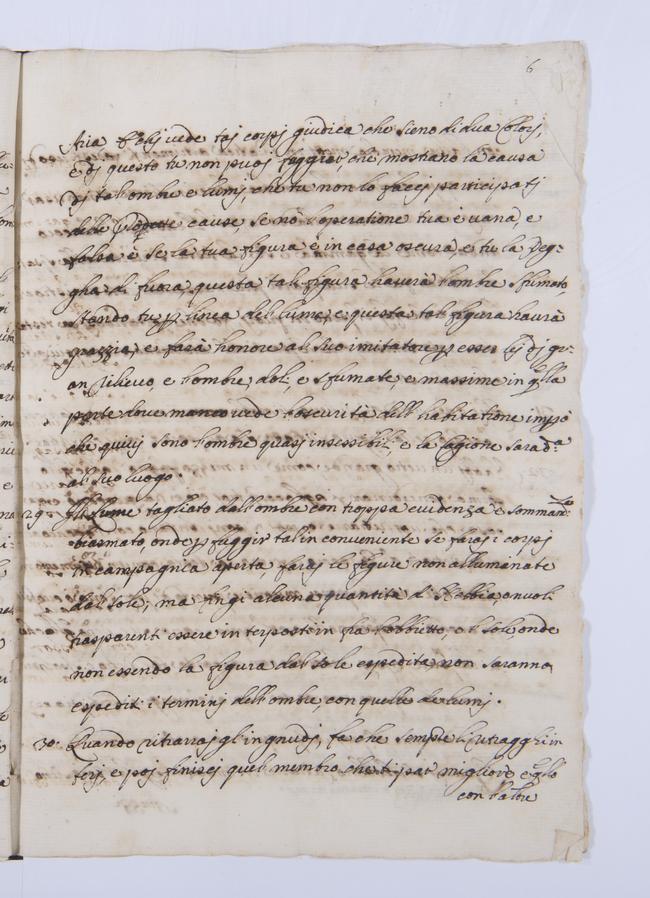 6
Aria e chj vede taj corpj giudica che sieno di dua Colorj,
e dj questo tu non puoj fuggire, che mostrano la causa
dj tal'ombre e lumj, che tu non lo faccj participatj
delle predette cause, se nò l'operatione tua è uana, e
falsa è se la tua figura è in casa oscura, e tu la Veg-
gha di fuora, questa tal figura hauerà l'ombre sfumate,
stando tu p linea del lume, e questa tal figura haurà
grazzia, e farà honore al suo imitatore p esser lej dj gr-
an rilieuo, e l'ombre dol. e sfumate, e massime in q.lla
parte doue manco uede l'oscurità dell'habitatione impò
che quiuj sono l'ombre quasj insensibili, e la cagione sarà d.a
al suo luogo.
29. Il Lume tagliato dall'ombre con troppa euidenza è sommam.te
biasmato, onde p fuggir tal inconueniente se faraj i corpj
in campagnea aperta, faraj le figure non alluminate
dal sole, ma fingi alcuna quantità di Nebbia, o nuoli
trasparenti essere interposti in fra l'obbietto, e il sole onde
non essendo la figura dal sole espedita, non saranno
espediti i terminj dell'ombre con quelle de lumj.
30. Quando ritrarraj gl'ingnudj, fa che sempre li ritragghi in
terj, e poj finiscj quel membro che ti par migliore e q.llo
con l'altre